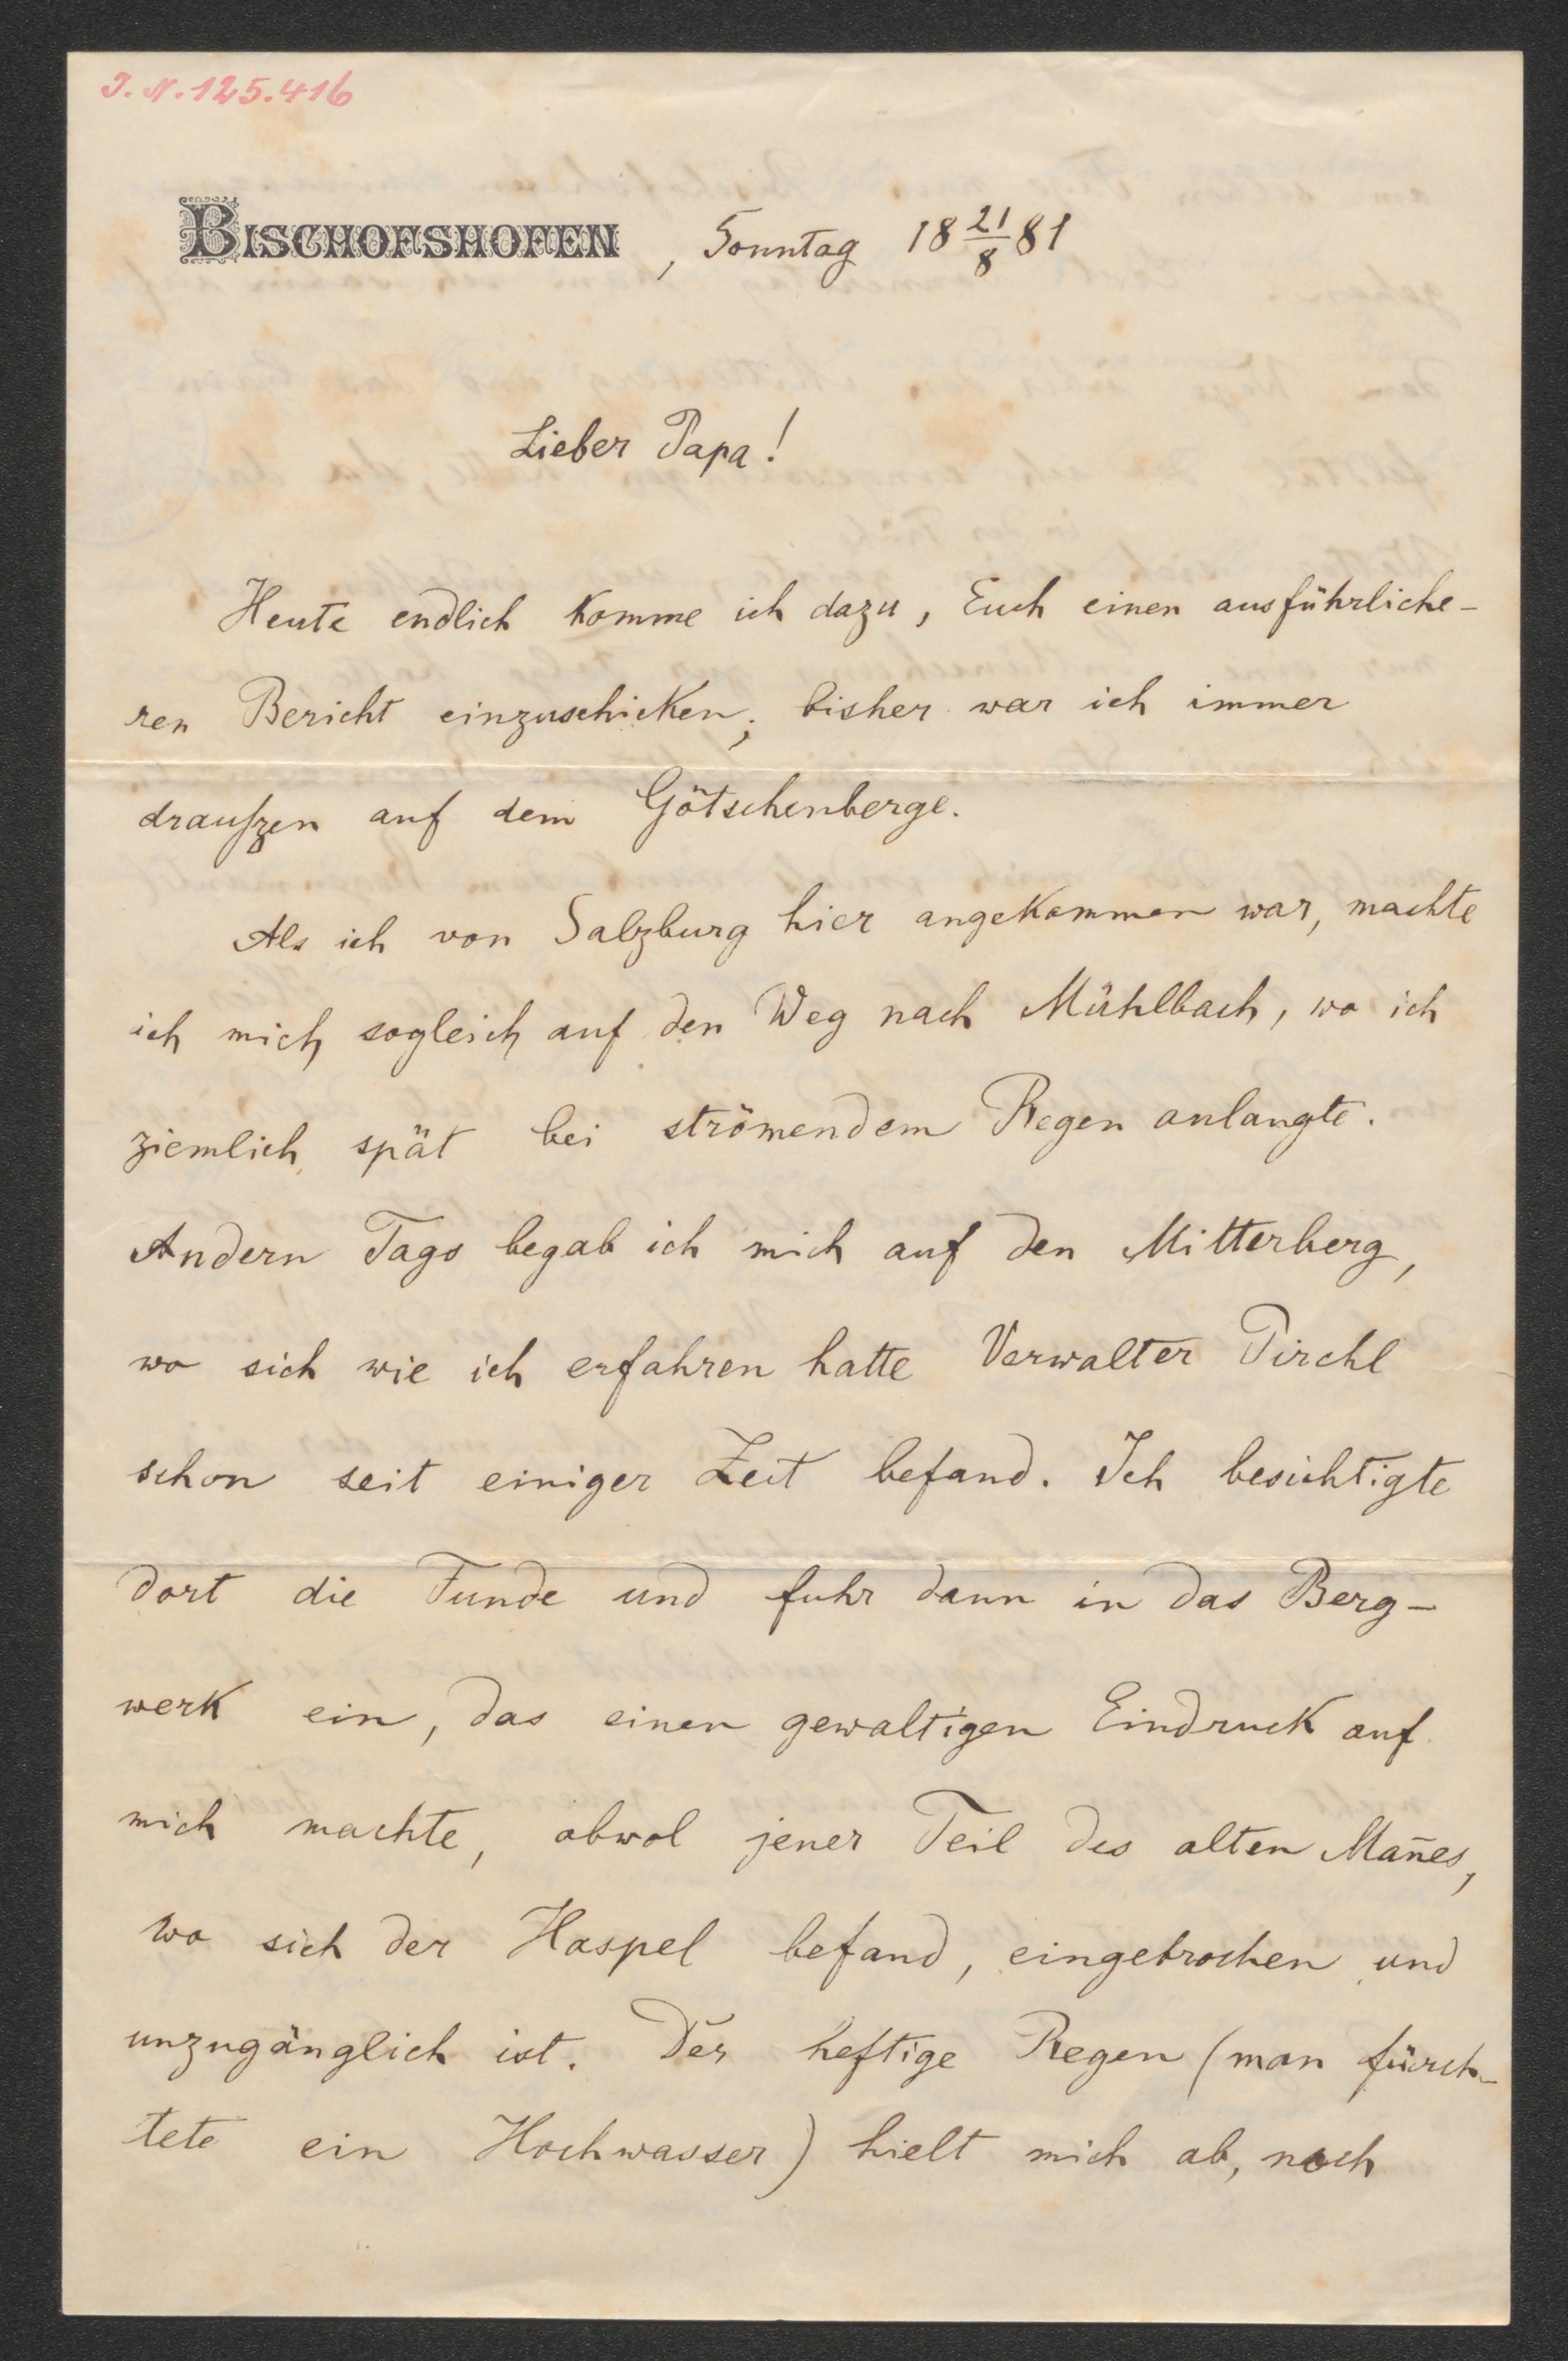 J. N. 125.416
BISCHOFSHOFEN, Sonntag 18 21/8 81
Lieber Papa!
Heute endlich komme ich dazu, Euch einen ausführliche-
ren Bericht einzuschicken; bisher war ich immer
draußzen auf dem Götschenberge.
Als ich von Salzburg hier angekommen war, machte
ich mich sogleich auf den Weg nach Mühlbach, wo ich
ziemlich spät bei strömendem Regen anlangte.
Andern Tags begab ich mich auf den Mitterberg,
wo sich wie ich erfahren hatte Verwalter Pirchl
schon seit einiger Zeit befand. Ich besichtigte
dort die Funde und fuhr dann in das Berg-
werk ein, das einen gewaltigen Eindruck auf
mich machte, obwol jener Teil des alten Mañes,
wo sich der Haspel befand, eingebrochen und
unzugänglich ist. Der heftige Regen (man fürch-
tete ein Hochwasser) hielt mich ab, noch